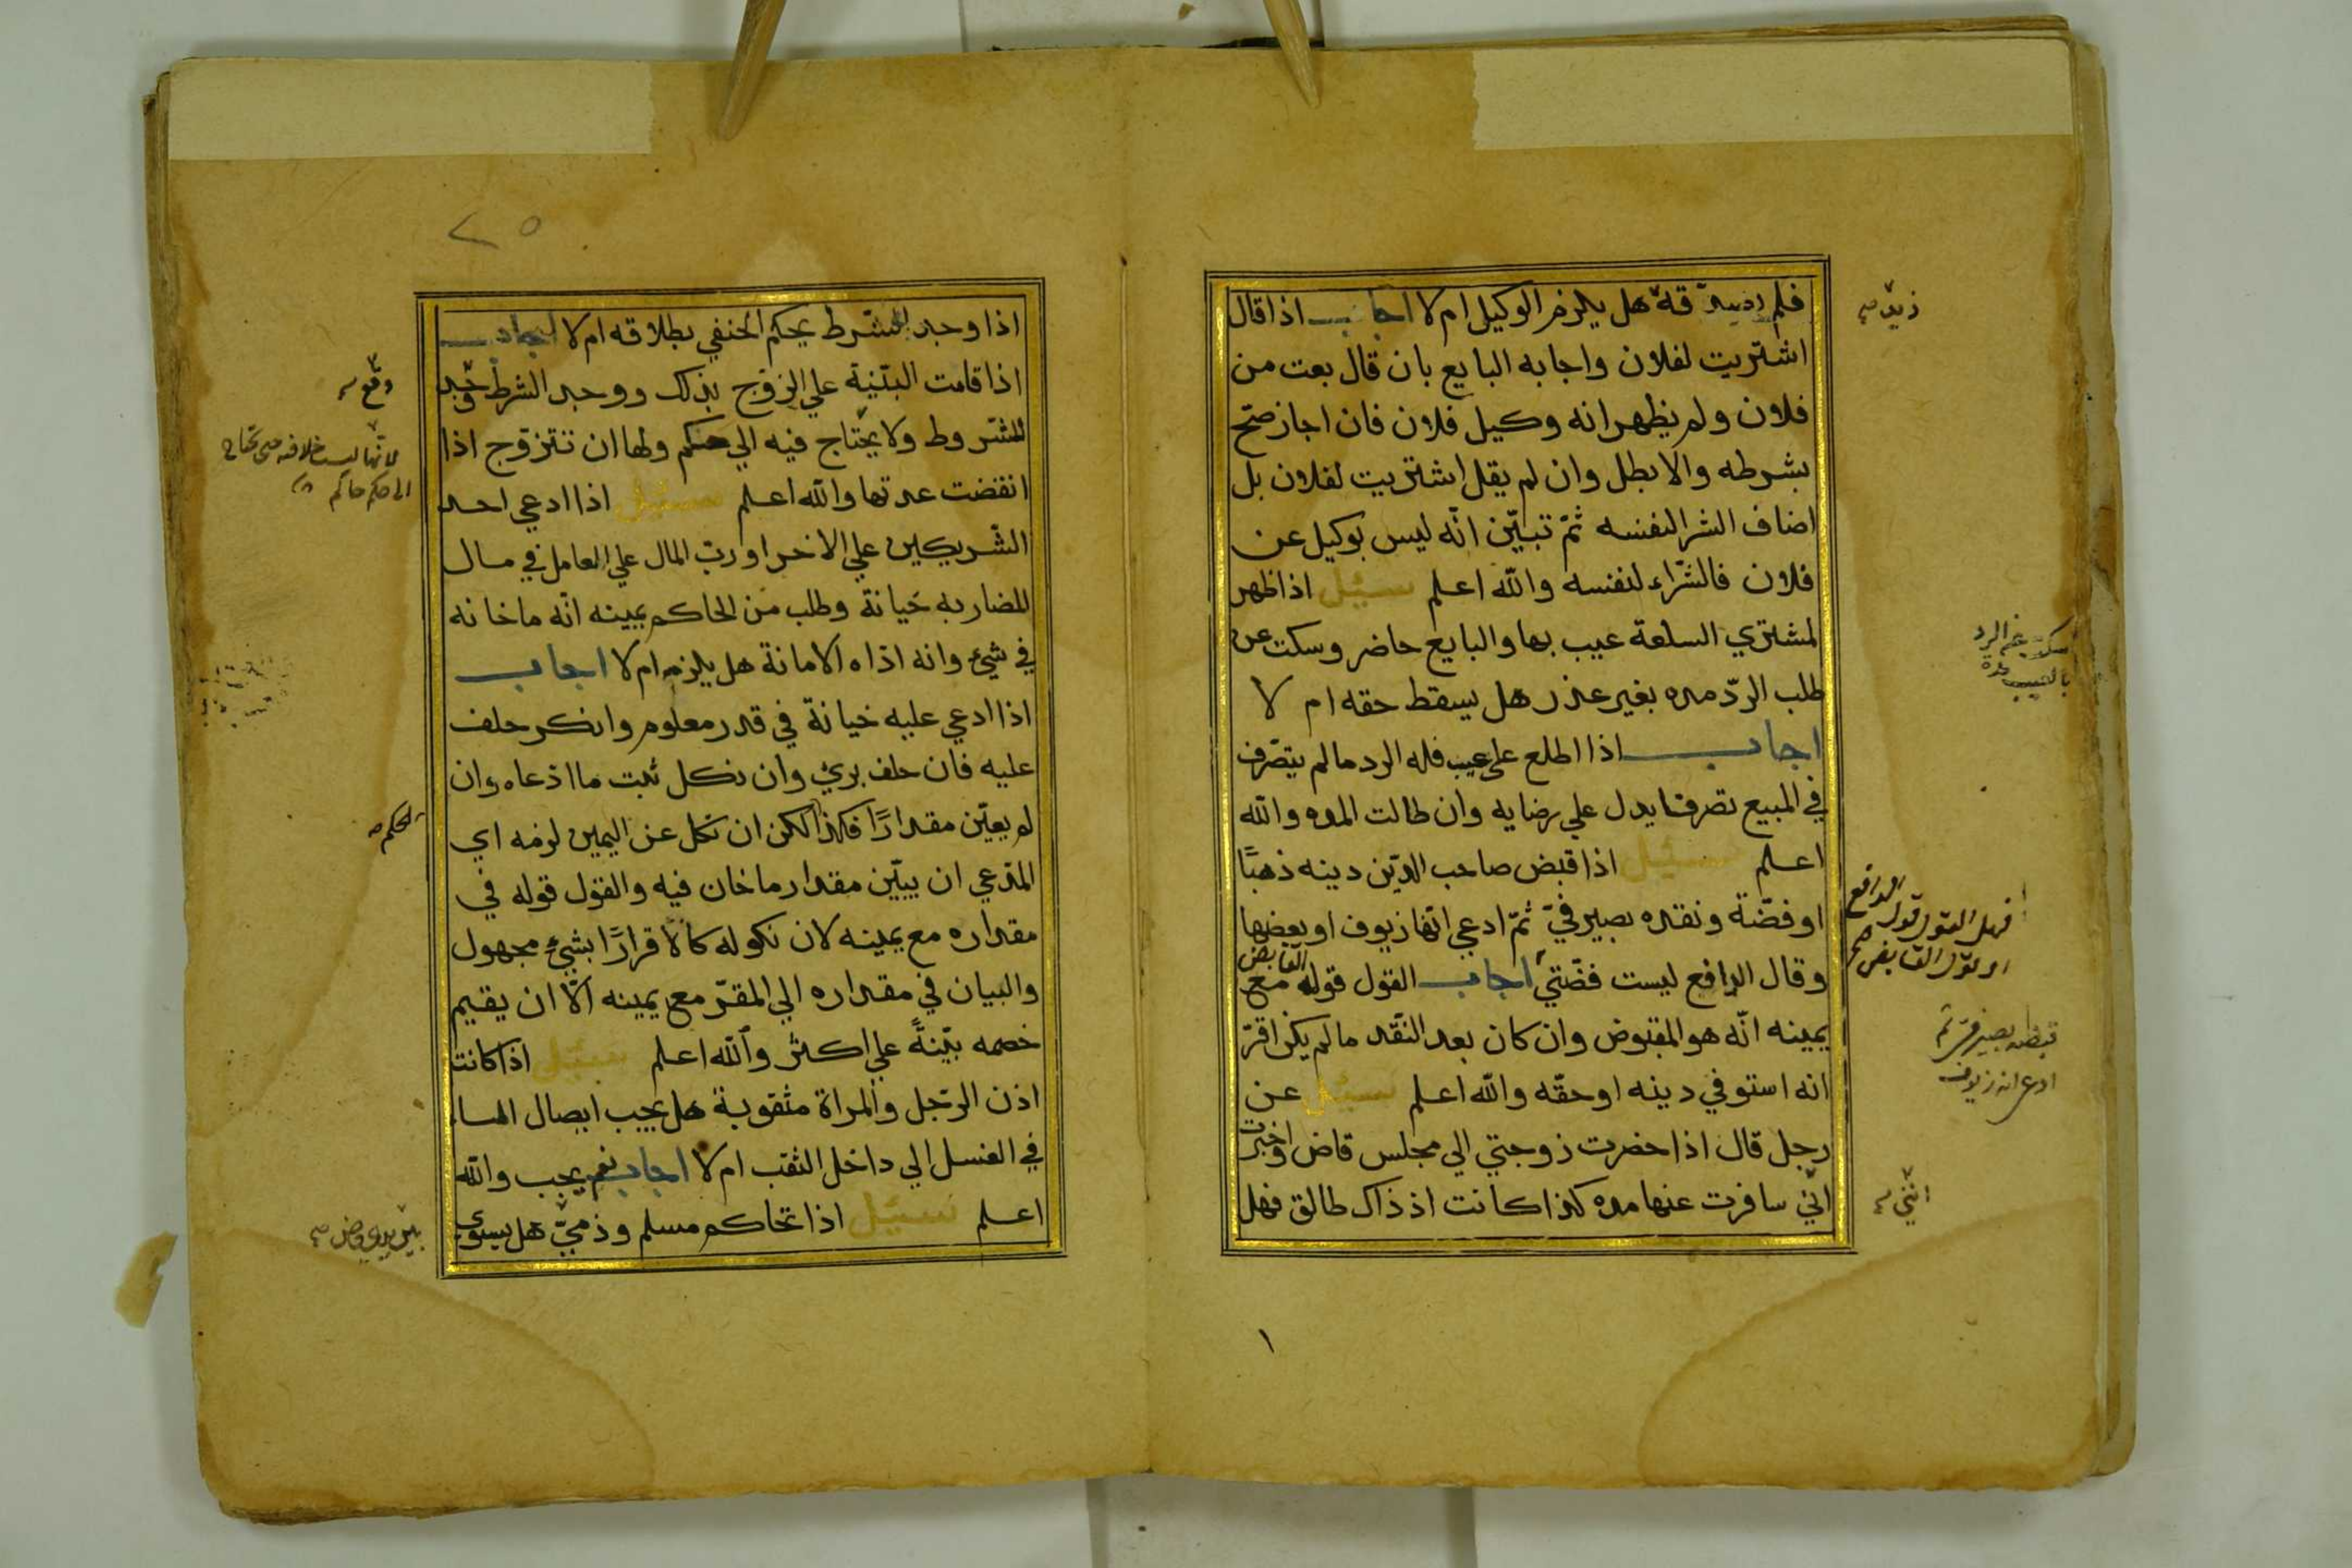 فلم يصدقه هل يلزم الوكيل ام لا اجاب اذا قال
اشتريت لفلان واجابه البايع بان قال بعت من
فلان ولم يظهر انه وكيل فلان فان اجاز صح
بشرطه والا بطل وان لم يقل اشتريت لفلان بل
اضاف الشرا لنفسه ثمّ تبيّن انّه ليس بوكيل عن
فلان فالشّراء لنفسه والله اعلم سئيل اذا ظهر
لمشتري السلعة عيب بها والبايع حاضر وسكت عن
طلب الردّ مده بغير عذر هل يسقط حقه ام لا
اجاب اذا اطلع على عيب فله الرد مالم يتصّرف
في المبيع تصرفا يدل علي رضايه وان طالت المده والله
اعلم سئيل اذا قبض صاحب الدّين دينه ذهبًا
او فضّة ونقده بصيرفيّ ثمّ ادعي انّها زيوف او بعضها
وقال الدافع ليست فضّتي اجاب القول قوله القابض مع
يمينه انّه هو المقبوض وان كان بعد النّقد مالم يكن اقرّ
انه استوفي دينه او حقّه والله اعلم سئيل عن
رجل قال اذا حضرت زوجتي الي مجلس قاض واخبرت
انّي سافرت عنها مده كذا كانت اذ ذاك طالق فهل
فهل القول قول الدافع
او قول القابض
ادعى انه زيوف
١
٢٥
اذا وجد الشرط يحكم الحنفي بطلاقه ام لا اجاب
اذا قامت البيّنة علي الزوج بذلك ووجد الشرط وجد
المشروط ولا يحتاج فيه الي حكم ولها ان تتزوج اذا
انقضت عدتها والله اعلم سئيل اذا ادعي احد
الشّريكين علي الاخر او ربّ المال علي العامل في مال
المضاربه خيانة وطلب من الحاكم يمينه انّه ما خانه
في شيء وانه اداه الامانة هل يلزم ام لا اجاب
اذا ادعي عليه خيانة في قدر معلوم وانكر حلف
عليه فان حلف بريء وان نكل ثبت ما ادّعاه وان
لم يعيّن مقدارًا فكذا لكن ان نكل عن اليمين لزمه اي
المدّعي ان يبيّن مقدار ما خان فيه والقول قوله في
مقداره مع يمينه لان نكوله كالاقرارًا بشيء مجهول
والبيان في مقداره الي المقرّ مع يمينه الّا ان يقيم
خصمه بيّنةً علي اكثر والله اعلم سئيل اذا كانت
اذن الرّجل والمراة مثقوبة هل يجب ايصال الماء
في الغسل الي داخل الثقب ام لا اجاب نعم يجب والله
اعلم سئيل اذا تحاكم مسلم وذميّ هل يسوي
وقع
لانها ليست خلافه حتى تحتاج
الى حكم حاكم
الحكم
بين يدي قاض